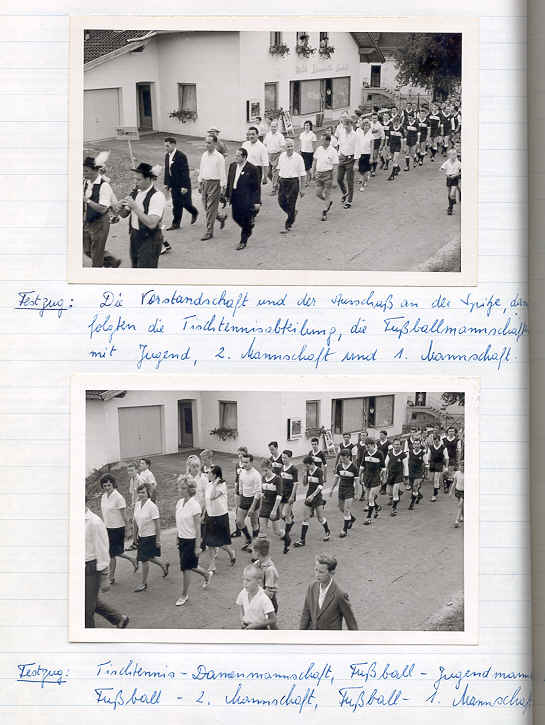 Festzug: Die Vorstandschaft und der Ausschuß an der Spitze, dan
folgten die Tischtennisabteilung, die Fußballmannschaft
mit Jugend, 2. Mannschaft und 1. Mannschaft.
Festzug: Tischtennis-Damenmannschaft, Fußball-Jugendmann
Fußball - 2. Mannschaft, Fußball - 1. Mannschaf